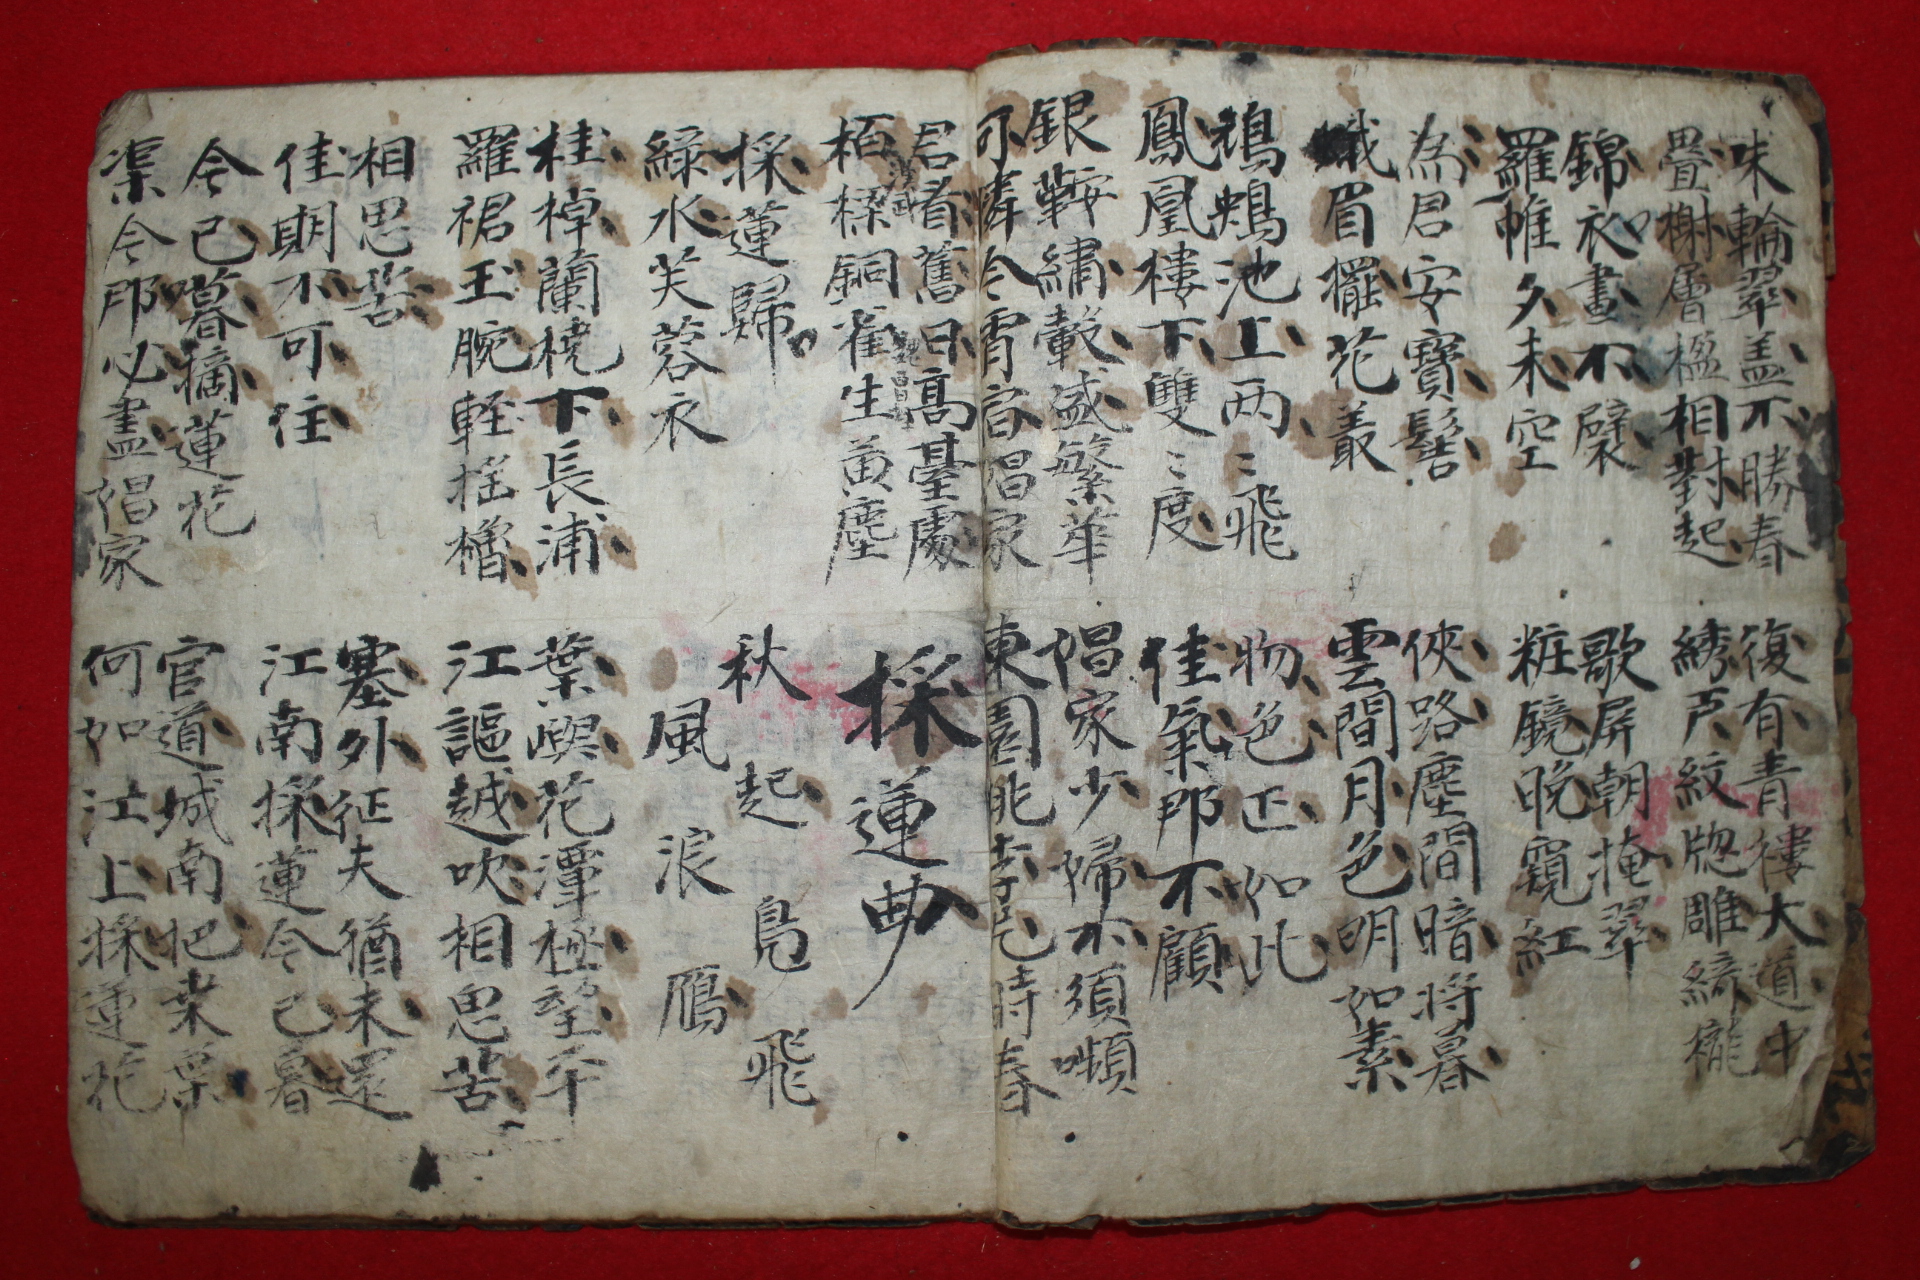 朱輪翠盖不勝春
疊榭層楹相對起
復有青樓大道中
綉戶紋牕雕綺櫳
錦衣晝不襞
羅帷夕未空
歌屏朝掩翠
粧鏡晚窺紅
為君安寶髻
蛾眉擺花叢
俠路塵間暗將暮
雲間月色明如素
鴛池上两〻飛
鳳凰樓下雙〻度
物色正如此
佳氣那不顧
銀鞍繡轂盛繁華
可憐今宵宿倡家
倡家少婦不須嚬
東園桃李片時春
君看舊日高臺處
栢樑銅雀生黃塵
採蓮曲
採蓮歸
綠水芙蓉衣
秋風起浪鳧鴈飛
桂棹蘭橈下長浦
羅裙玉腕輕搖櫓
葉嶼花潭極望平
江謳越吹相思苦
相思苦
佳期不可住
塞外征夫猶未還
江南採蓮今已暮
今已暮摘蓮花
渠今那必盡倡家
官道城南把桒葉
何如江上採蓮花